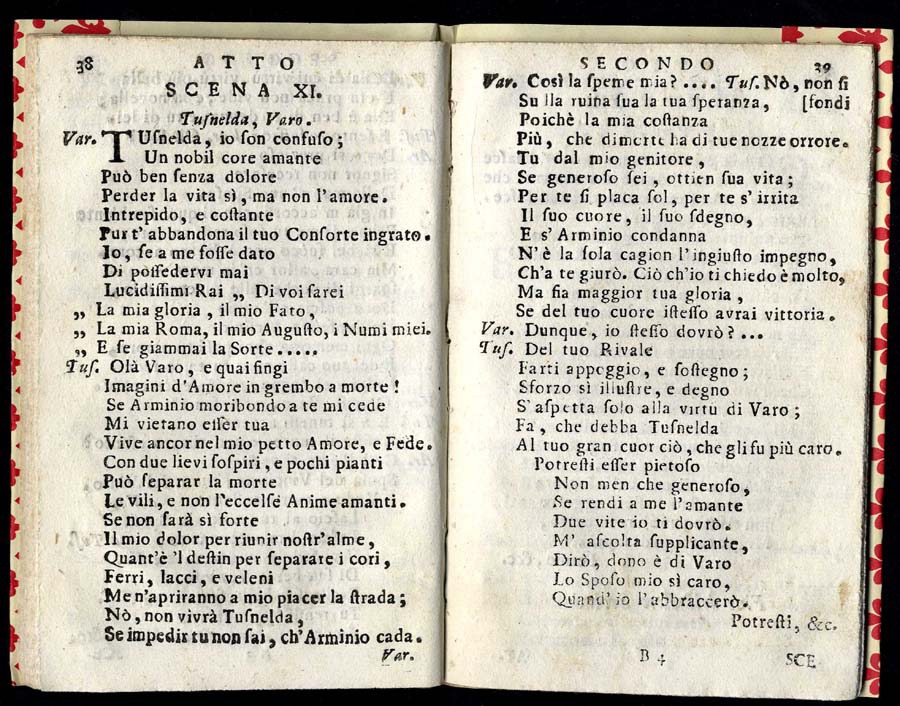 38 ATTO
SCENA XI.
Tuſnelda, Varo.
Var. TUſnelda, io ſon confuſo;
Un nobil core amante
Può ben ſenza dolore
Perder la vita sì, ma non l'amore.
Intrepido, e coſtante
Pur t'abbandona il tuo Conſorte ingrato.
Io, ſe a me foſſe dato
Di poſſedervi mai
Lucidiſſimi Rai „ Di voi farei
„ La mia gloria, il mio Fato,
„ La mia Roma, il mio Auguſto, i Numi miei.
„ E ſe giammai la Sorte .....
Tuſ. Olà Varo, e quai fingi
Imagini d'Amore in grembo a morte!
Se Arminio moribondo a te mi cede
Mi vietano eſſer tua
Vive ancor nel mio petto Amore, e Fede.
Con due lievi ſoſpiri, e pochi pianti
Può ſeparar la morte
Le vili, e non l'eccelſe Anime amanti.
Se non ſarà sì forte
Il mio dolor per riunir noſtr'alme,
Quant'è 'l deſtin per ſeparare i cori,
Ferri, lacci, e veleni
Me n'apriranno a mio piacer la ſtrada;
Nò, non vivrà Tuſnelda,
Se impedir tu non ſai, ch'Arminio cada.
Var.
SECONDO 39
Var. Così la ſpeme mia? .... Tuſ. Nò, non ſi
Su lla ruina ſua la tua ſperanza, [fondi
Poichè la mia coſtanza
Più, che di morte ha di tue nozze orrore.
Tu dal mio genitore,
Se generoſo ſei, ottien ſua vita;
Per te ſi placa ſol, per te s'irrita
Il ſuo cuore, il ſuo ſdegno,
E s'Arminio condanna
N'è la ſola cagion l'ingiuſto impegno,
Ch'a te giurò. Ciò ch'io ti chiedo è molto,
Ma fia maggior tua gloria,
Se del tuo cuore iſteſſo avrai vittoria.
Var. Dunque, io ſteſſo dovrò? ...
Tuſ. Del tuo Rivale
Farti appoggio, e ſoſtegno;
Sforzo sì illuſtre, e degno
S'aſpetta ſolo alla virtù di Varo;
Fa, che debba Tuſnelda
Al tuo gran cuor ciò, che gli fu più caro.
Potreſti eſſer pietoſo
Non men che generoſo,
Se rendi a me l'amante
Due vite io ti dovrò.
M'aſcolta ſupplicante,
Dirò, dono è di Varo
Lo Spoſo mio sì caro,
Quand'io l'abbraccerò.
Potreſti, &c.
B 4 SCE